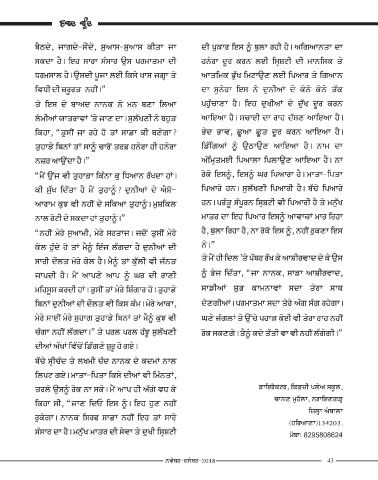 ਬੈਠਦੇ, ਜਾਗਦੇ-ਸੌਂਦੇ, ਸੁਆਸ-ਸੁਆਸ ਕੀਤਾ ਜਾ
ਸਕਦਾ ਹੈ। ਇਹ ਸਾਰਾ ਸੰਸਾਰ ਉਸ ਪਰਮਾਤਮਾ ਦੀ
ਧਰਮਸਾਲ ਹੈ। ਉਸਦੀ ਪੂਜਾ ਲਈ ਕਿਸੇ ਖਾਸ ਜਗ੍ਹਾ ਤੇ
ਵਿਧੀ ਦੀ ਜ਼ਰੂਰਤ ਨਹੀਂ।”
ਤੇ ਇਸ ਦੇ ਬਾਅਦ ਨਾਨਕ ਨੇ ਮਨ ਬਣਾ ਲਿਆ
ਲੰਮੀਆਂ ਯਾਤਰਾਵਾਂ ’ਤੇ ਜਾਣ ਦਾ। ਸੁਲੱਖਣੀ ਨੇ ਬਹੁਤ
ਕਿਹਾ, “ਤੁਸੀਂ ਜਾ ਰਹੇ ਹੋ ਤਾਂ ਸਾਡਾ ਕੀ ਬਣੇਗਾ?
ਤੁਹਾਡੇ ਬਿਨਾਂ ਤਾਂ ਸਾਨੂੰ ਚਾਰੋਂ ਤਰਫ਼ ਹਨੇਰਾ ਹੀ ਹਨੇਰਾ
ਨਜ਼ਰ ਆਉਂਦਾ ਹੈ।”
“ਮੈਂ ਉੱਜ ਵੀ ਤੁਹਾਡਾ ਕਿੰਨਾ ਕੁ ਧਿਆਨ ਰੱਖਦਾ ਹਾਂ।
ਕੀ ਸੁੱਖ ਦਿੱਤਾ ਹੈ ਮੈਂ ਤੁਹਾਨੂੰ? ਦੁਨੀਆਂ ਦੇ ਐਸ਼ੋ-
ਆਰਾਮ ਕੁਝ ਵੀ ਨਹੀਂ ਦੇ ਸਕਿਆ ਤੁਹਾਨੂੰ। ਮੁਸ਼ਕਿਲ
ਨਾਲ ਰੋਟੀ ਦੇ ਸਕਦਾ ਹਾਂ ਤੁਹਾਨੂੰ।”
“ਨਹੀਂ ਮੇਰੇ ਸੁਆਮੀ, ਮੇਰੇ ਸਰਤਾਜ। ਜਦੋਂ ਤੁਸੀਂ ਮੇਰੇ
ਕੋਲ ਹੁੰਦੇ ਹੋ ਤਾਂ ਮੈਨੂੰ ਇੰਜ ਲੱਗਦਾ ਹੈ ਦੁਨੀਆਂ ਦੀ
ਸਾਰੀ ਦੌਲਤ ਮੇਰੇ ਕੋਲ ਹੈ। ਮੈਨੂੰ ਤਾਂ ਕੁੱਲੀ ਵੀ ਜੰਨਤ
ਜਾਪਦੀ ਹੈ। ਮੈਂ ਆਪਣੇ ਆਪ ਨੂੰ ਘਰ ਦੀ ਰਾਣੀ
ਮਹਿਸੂਸ ਕਰਦੀ ਹਾਂ। ਤੁਸੀਂ ਤਾਂ ਮੇਰੇ ਸ਼ਿੰਗਾਰ ਹੋ। ਤੁਹਾਡੇ
ਬਿਨਾਂ ਦੁਨੀਆਂ ਦੀ ਦੌਲਤ ਵੀ ਕਿਸ ਕੰਮ। ਮੇਰੇ ਆਕਾ,
ਮੇਰੇ ਸਾਈਂ ਮੇਰੇ ਸੁਹਾਗ ਤੁਹਾਡੇ ਬਿਨਾਂ ਤਾਂ ਮੈਨੂੰ ਕੁਝ ਵੀ
ਚੰਗਾ ਨਹੀਂ ਲੱਗਦਾ।” ਤੇ ਪਰਲ ਪਰਲ ਹੰਝੂ ਸੁਲੱਖਣੀ
ਦੀਆਂ ਅੱਖਾਂ ਵਿੱਚੋਂ ਡਿੱਗਣੇ ਸ਼ੁਰੂ ਹੋ ਗਏ।
ਬੱਚੇ ਸ੍ਰੀਚੰਦ ਤੇ ਲਖਮੀ ਚੰਦ ਨਾਨਕ ਦੇ ਕਦਮਾਂ ਨਾਲ
ਲਿਪਟ ਗਏ। ਮਾਤਾ-ਪਿਤਾ ਕਿਸੇ ਦੀਆਂ ਵੀ ਮਿੰਨਤਾਂ,
ਤਰਲੇ ਉਸਨੂੰ ਰੋਕ ਨਾ ਸਕੇ। ਮੈਂ ਆਪ ਹੀ ਅੱਗੇ ਵਧ ਕੇ
ਕਿਹਾ ਸੀ, “ਜਾਣ ਦਿਓ ਇਸ ਨੂੰ। ਇਹ ਹੁਣ ਨਹੀਂ
ਰੁਕੇਗਾ। ਨਾਨਕ ਸਿਰਫ ਸਾਡਾ ਨਹੀਂ ਇਹ ਤਾਂ ਸਾਰੇ
ਸੰਸਾਰ ਦਾ ਹੈ। ਮਨੁੱਖ ਮਾਤਰ ਦੀ ਸੇਵਾ ਤੇ ਦੁਖੀ ਸ੍ਰਿਸ਼ਟੀ
ਦੀ ਪੁਕਾਰ ਇਸ ਨੂੰ ਬੁਲਾ ਰਹੀ ਹੈ। ਅਗਿਆਨਤਾ ਦਾ
ਹਨੇਰਾ ਦੂਰ ਕਰਨ ਲਈ ਸ੍ਰਿਸ਼ਟੀ ਦੀ ਮਾਨਸਿਕ ਤੇ
ਆਤਮਿਕ ਭੁੱਖ ਮਿਟਾਉਣ ਲਈ ਪਿਆਰ ਤੇ ਗਿਆਨ
ਦਾ ਸੁਨੇਹਾ ਇਸ ਨੇ ਦੁਨੀਆਂ ਦੇ ਕੋਨੇ ਕੋਨੇ ਤੱਕ
ਪਹੁੰਚਾਣਾ ਹੈ। ਇਹ ਦੁਖੀਆਂ ਦੇ ਦੁੱਖ ਦੂਰ ਕਰਨ
ਆਇਆ ਹੈ। ਸਚਾਈ ਦਾ ਰਾਹ ਦੱਸਣ ਆਇਆ ਹੈ।
ਭੇਦ ਭਾਵ, ਛੂਆ ਛੂਤ ਦੂਰ ਕਰਨ ਆਇਆ ਹੈ।
ਡਿੱਗਿਆਂ ਨੂੰ ਉਠਾਉਣ ਆਇਆ ਹੈ। ਨਾਮ ਦਾ
ਅੰਮ੍ਰਿਤਮਈ ਪਿਆਲਾ ਪਿਲਾਉਣ ਆਇਆ ਹੈ। ਨਾ
ਰੋਕੋ ਇਸਨੂੰ, ਇਸਨੂੰ ਘਰ ਪਿਆਰਾ ਹੈ। ਮਾਤਾ-ਪਿਤਾ
ਪਿਆਰੇ ਹਨ। ਸੁਲੱਖਣੀ ਪਿਆਰੀ ਹੈ। ਬੱਚੇ ਪਿਆਰੇ
ਹਨ। ਪਰੰਤੂ ਸੰਪੂਰਨ ਸ੍ਰਿਸ਼ਟੀ ਵੀ ਪਿਆਰੀ ਹੈ ਤੇ ਮਨੁੱਖ
ਮਾਤਰ ਦਾ ਇਹ ਪਿਆਰ ਇਸਨੂੰ ਆਵਾਜ਼ਾਂ ਮਾਰ ਰਿਹਾ
ਹੈ, ਬੁਲਾ ਰਿਹਾ ਹੈ, ਨਾ ਰੋਕੋ ਇਸ ਨੂੰ, ਨਹੀਂ ਰੁਕਣਾ ਇਸ
ਨੇ।”
ਤੇ ਮੈਂ ਹੀ ਦਿਲ ’ਤੇ ਪੱਥਰ ਰੱਖ ਕੇ ਆਸ਼ੀਰਵਾਦ ਦੇ ਕੇ ਉਸ
ਨੂੰ ਭੇਜ ਦਿੱਤਾ, “ਜਾ ਨਾਨਕ, ਸਾਡਾ ਆਸ਼ੀਰਵਾਦ,
ਸਾਡੀਆਂ ਸ਼ੁਭ ਕਾਮਨਾਵਾਂ ਸਦਾ ਤੇਰਾ ਸਾਥ
ਦੇਣਗੀਆਂ। ਪਰਮਾਤਮਾ ਸਦਾ ਤੇਰੇ ਅੰਗ ਸੰਗ ਰਹੇਗਾ।
ਘਣੇ ਜੰਗਲਾਂ ਤੇ ਉੱਚੇ ਪਹਾੜ ਕੋਈ ਵੀ ਤੇਰਾ ਰਾਹ ਨਹੀਂ
ਰੋਕ ਸਕਣਗੇ। ਤੈਨੂੰ ਕਦੇ ਤੱਤੀ ਵਾ ਵੀ ਨਹੀਂ ਲੱਗੇਗੀ।”
ਡਾਇਰੈਕਟਰ, ਕਿਡਜ਼ੀ ਪਲੇਅ ਸਕੂਲ,
ਚਾਨਣ ਮੁਹੱਲਾ, ਨਰਾਇਣਗੜ੍ਹ
ਜ਼ਿਲ੍ਹਾ ਅੰਬਾਲਾ
(ਹਰਿਆਣਾ)134203.
ਮੋਬਾ: 8295808624
ਨਵੰਬਰ-ਦਸੰਬਰ-2018
43